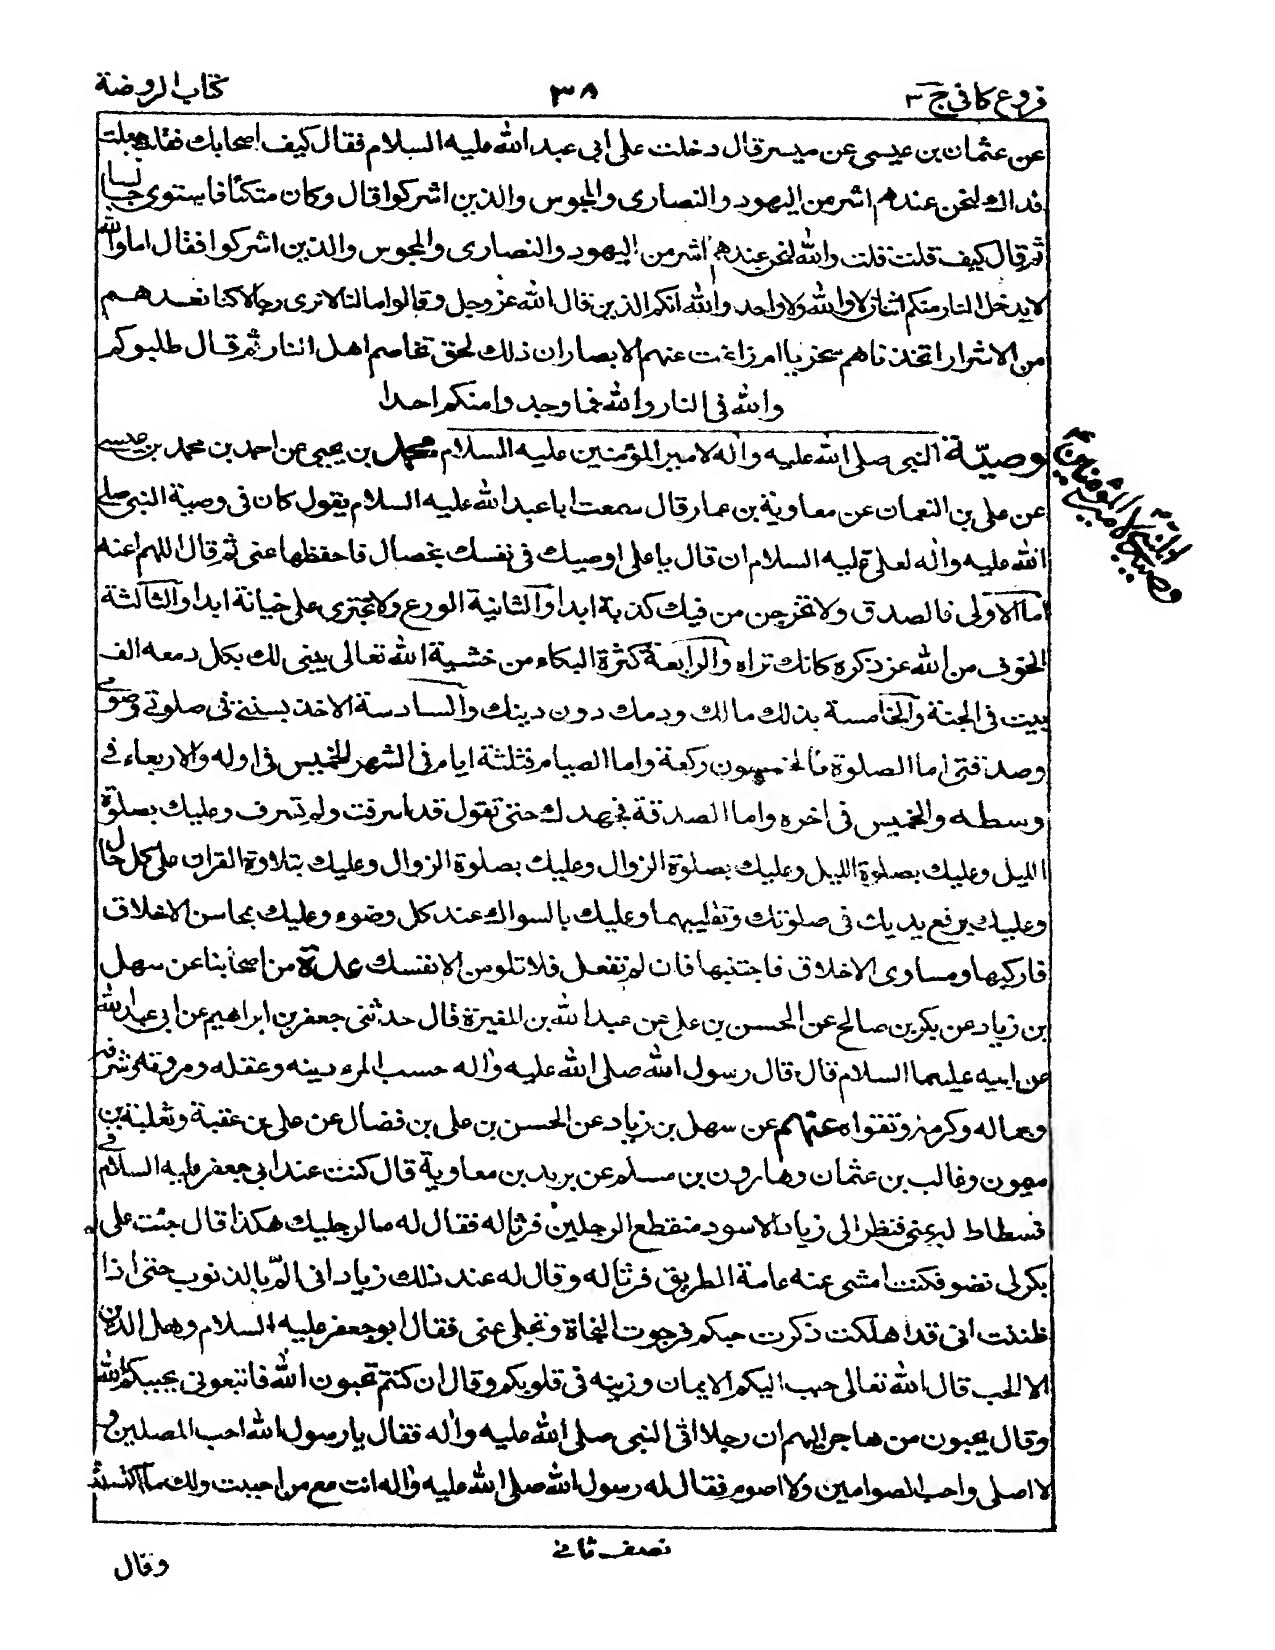 فروع كافی ج ٣
٣٨
كتاب الروضة
عن عثمان بن عيسى عن ميسر قال دخلت على ابى عبد الله عليه السلام فقال كيف اصحابك فقلت جعلت
فداك لنحن عندهم اشر من اليهود والنصارى والمجوس والذين اشركوا قال وكان متكئا فاستوى جالسا
ثم قال كيف قلت قلت والله لنحن عندهم اشر من اليهود والنصارى والمجوس والذين اشركوا فقال اما والله
لا يدخل النار منكم اثنان لا والله ولا واحد والله انكم الذين قال الله عز وجل وقالوا ما لنا لا نرى رجالا كنا نعدهم
من الاشرار اتخذناهم سخريا ام زاغت عنهم الابصار ان ذلك لحق تخاصم اهل النار ثم قال طلبوكم
والله فى النار والله فما وجدوا منكم احدا
وصيّة النبى صلى الله عليه واله لامير المؤمنين عليه السلام محمد بن يحيى عن احمد بن محمد بن عيسى
عن على بن النعمان عن معاوية بن عمار قال سمعت ابا عبد الله عليه السلام يقول كان فى وصية النبى صلى
الله عليه واله لعلى عليه السلام ان قال يا على اوصيك فى نفسك بخصال فاحفظها عنى ثم قال اللهم اعنه
اما الاولى فالصدق ولا تخرجن من فيك كذبة ابدا والثانية الورع ولا تجترى على خيانة ابدا والثالثة
الخوف من الله عز ذكره كانك تراه والرابعة كثرة البكاء من خشية الله تعالى يبنى لك بكل دمعه الف
بيت فى الجنة والخامسة بذلك مالك ودمك دون دينك والسادسة الاخذ بسنتى فى صلوتى وصومى
وصدقتى اما الصلوة فالخمسون ركعة واما الصيام فثلثة ايام فى الشهر الخميس فى اوله والاربعاء فى
وسطه والخميس فى اخره واما الصدقة فجهدك حتى تقول قد اسرفت ولم تسرف وعليك بصلوة
الليل وعليك بصلوة الليل وعليك بصلوة الزوال وعليك بصلوة الزوال وعليك بتلاوة القران على كل حال
وعليك برفع يديك فى صلوتك وتقليبهما وعليك بالسواك عند كل وضوء وعليك بمحاسن الاخلاق
فاركبها ومساوى الاخلاق فاجتنبها فان لم تفعل فلا تلومن الا نفسك عدة من اصحابنا عن سهل
بن زياد عن بكر بن صالح عن الحسن بن على عن عبد الله بن المغيرة قال حدثنى جعفر بن ابراهيم عن ابى عبد الله
عن ابيه عليهما السلام قال قال رسول الله صلى الله عليه واله حسب المرء دينه وعقله ومروته وشرفه
وجماله وكرمه وتقواه عنهم عن سهل بن زياد عن الحسن بن على بن فضال عن على بن عقبة وثعلبة بن
ميمون وغالب بن عثمان وهارون بن مسلم عن بريد بن معاوية قال كنت عند ابى جعفر عليه السلام فى
فسطاط له بمنى فنظر الى زياد الاسود منقطع الرجلين فرثا له فقال له ما لرجليك هكذا قال جئت على
بكر لى نضو فكنت امشى عنه عامة الطريق فرثا له وقال له عند ذلك زياد انى المّ بالذنوب حتى اذا
ظننت انى قد هلكت ذكرت حبكم فرجوت النجاة وتجلى عنى فقال ابو جعفر عليه السلام وهل الدين
الا الحب قال الله تعالى حبب اليكم الايمان وزينه فى قلوبكم وقال ان كنتم تحبون الله فاتبعونى يحببكم الله
وقال يحبون من هاجر اليهم ان رجلا اتى النبى صلى الله عليه واله فقال يا رسول الله احب المصلين و
لا اصلى واحب الصوامين ولا اصوم فقال له رسول الله صلى الله عليه واله انت مع من احببت ولك ما اكتسبت
نصف ثانى
وقال